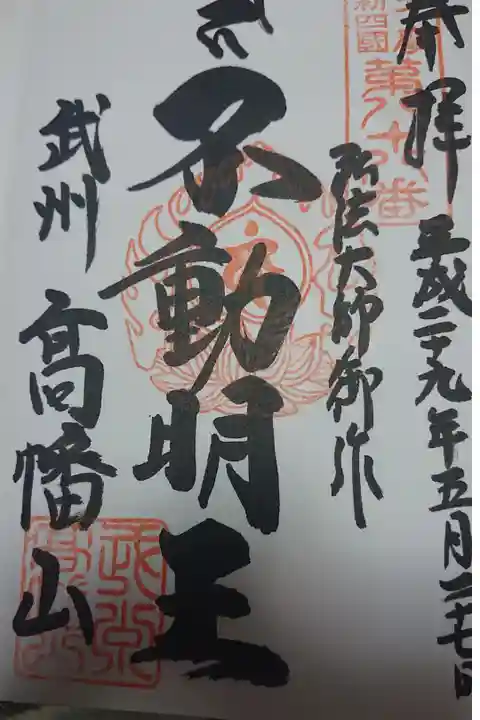 奉拝
平成二十九年五月二十七日
弘法大師御作
不動明王
武州
高幡山